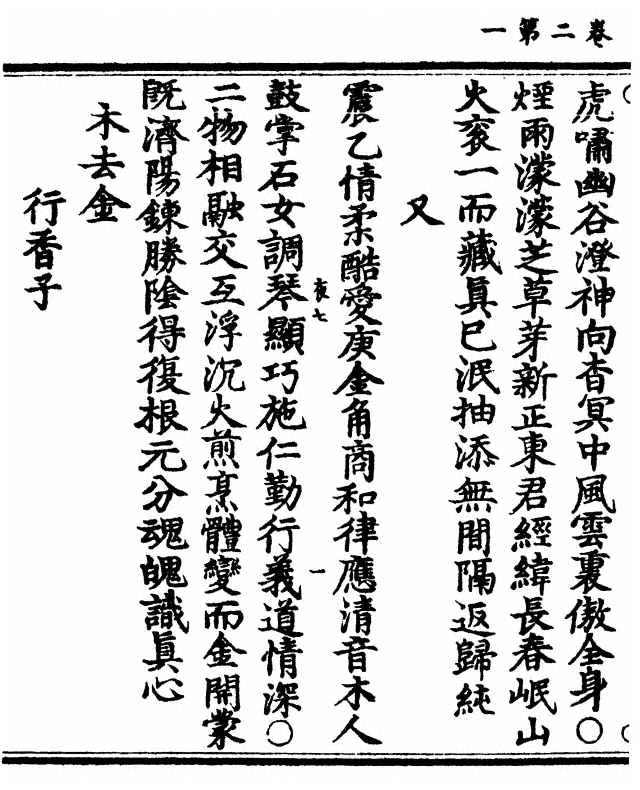 卷二第一
虎嘯幽谷澄神向杳冥中風雲裏傲全身○
煙雨濛濛芝草芽新正東君經緯長春岷山
火衮一而藏真已泯抽添無間隔返歸純
又
震乙情柔酷愛庚金角商和律應清音木人
衮七
鼓掌石女調琴顯巧施仁勤行義道情深○
一
二物相融交互浮沉火煎烹體變而金開蒙
既濟陽鍊勝陰得復根元分魂魄識真心
木去金
行香子